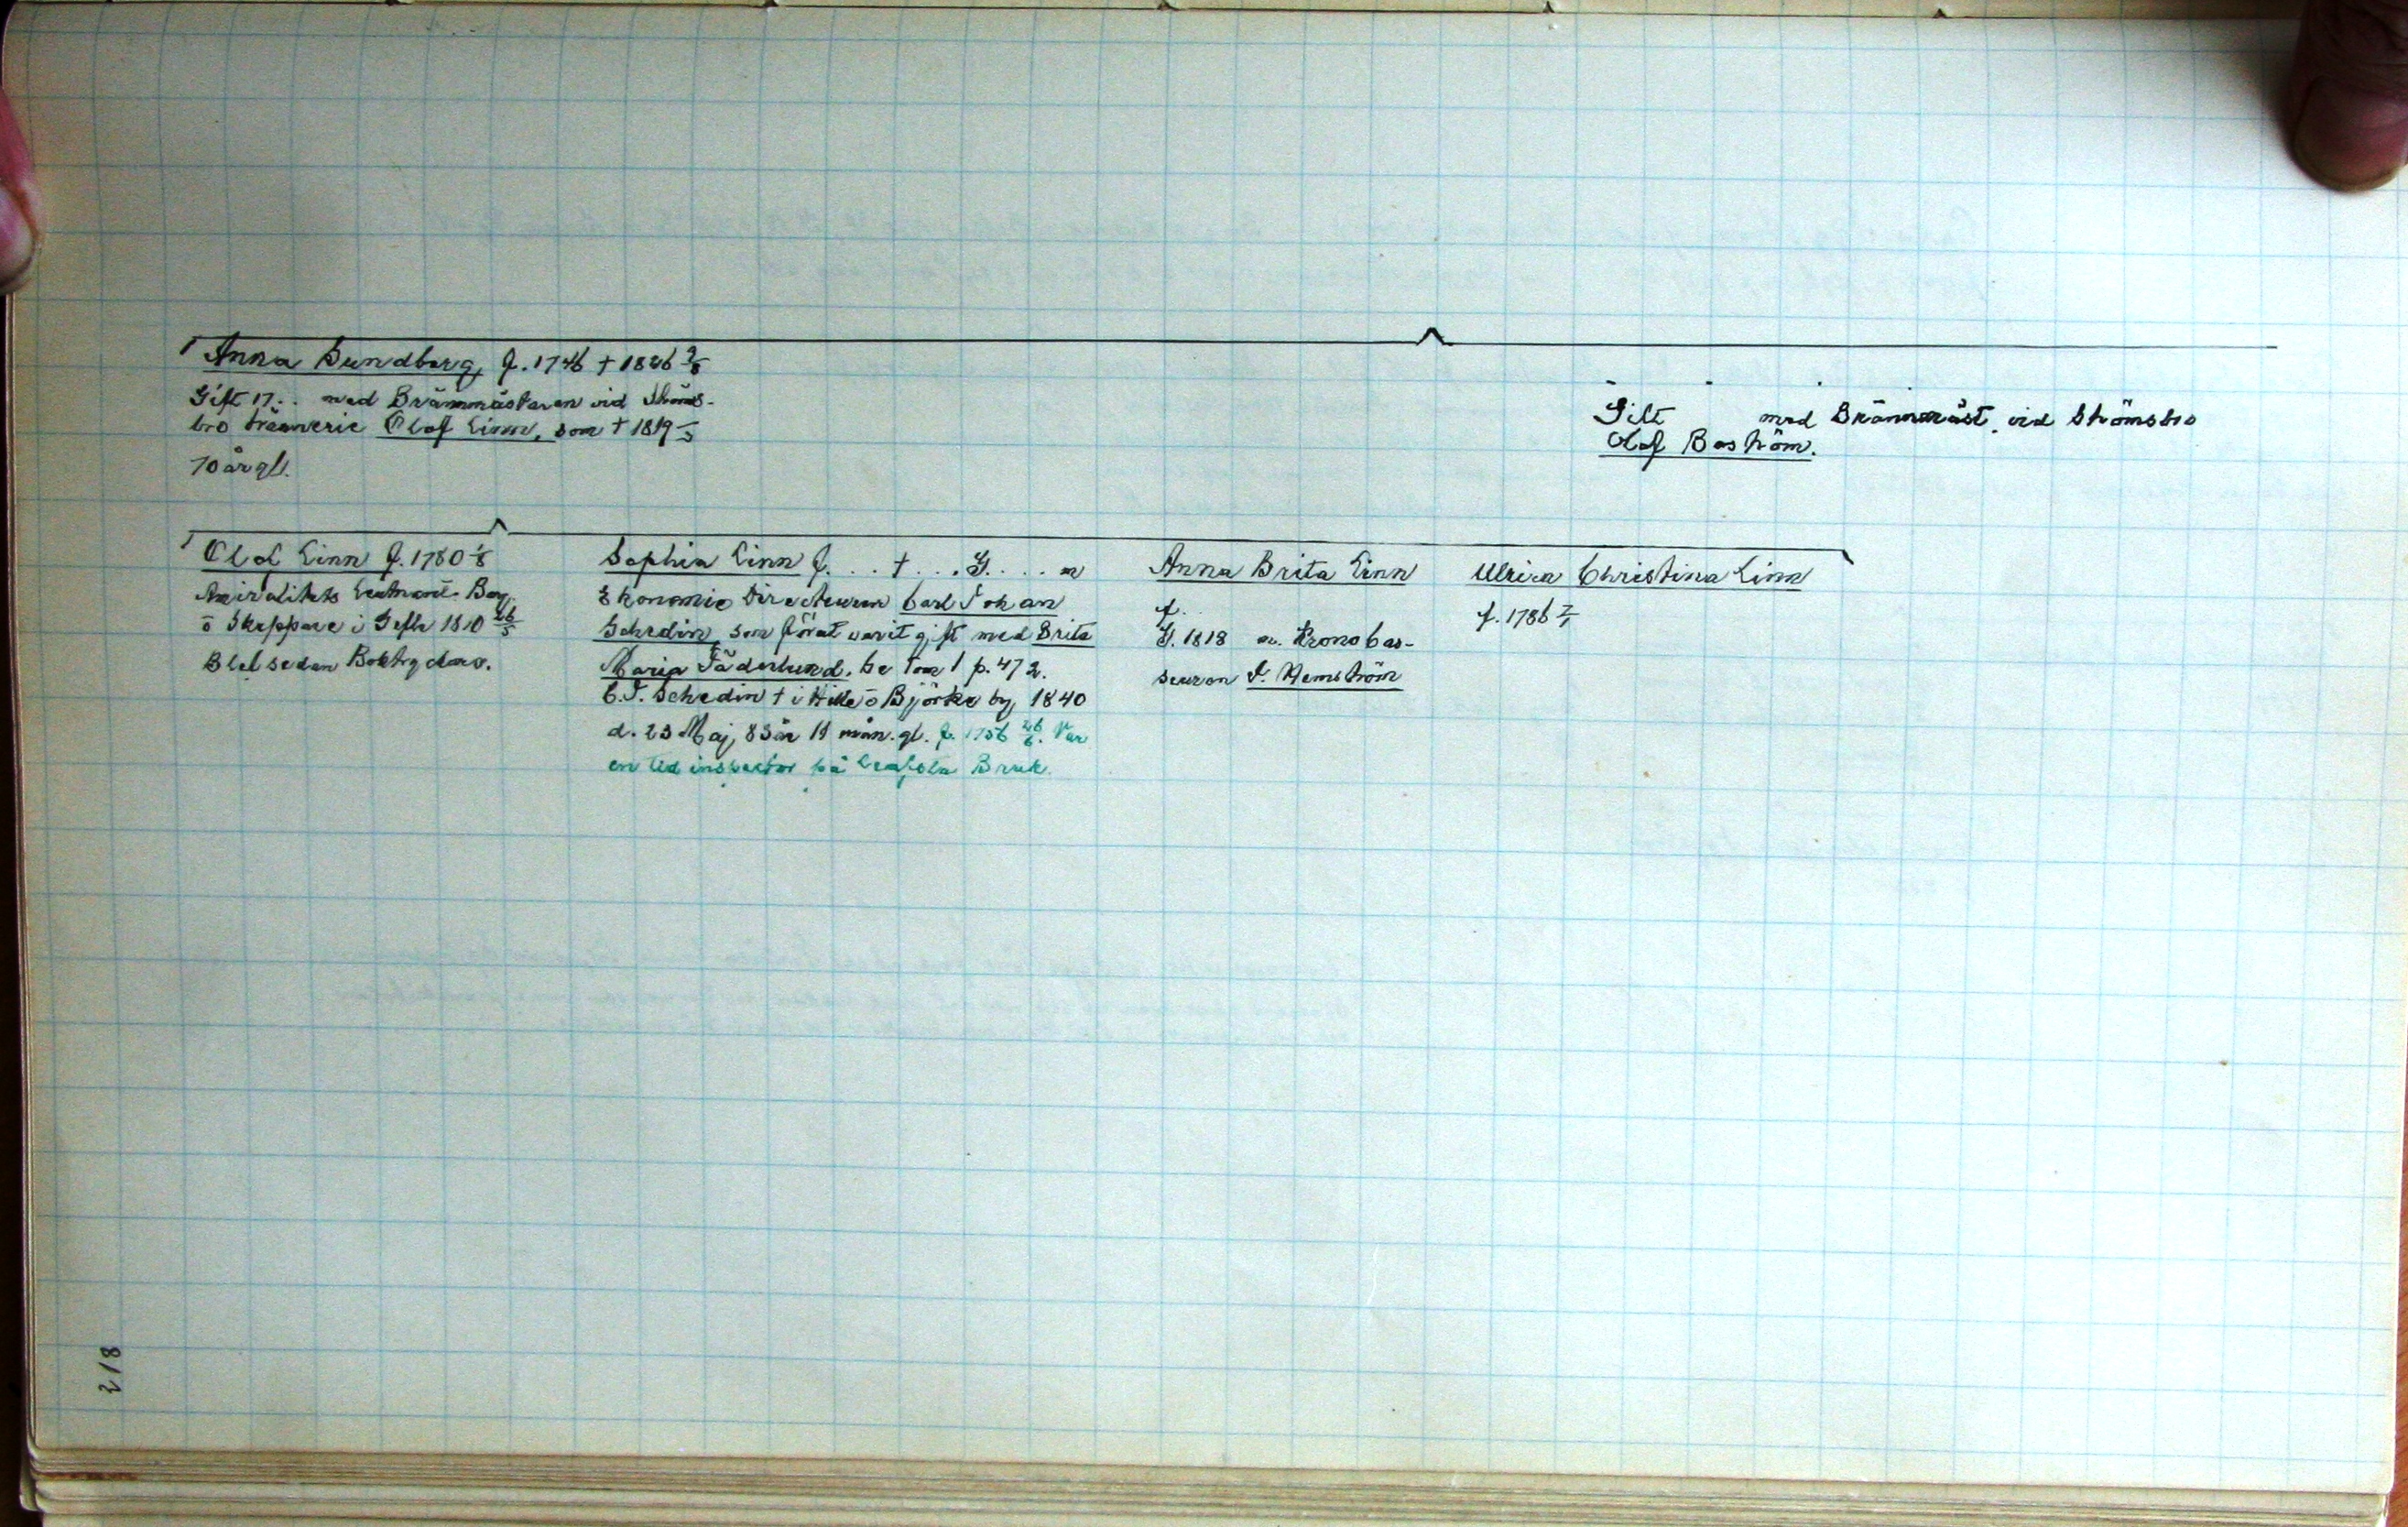 Anna Sundborg, f. 1746 † 1826 9/8
Gift 17.. med Brännmästaren vid Ströms-
bro bränneri Olof Linn, som † 1819
70 år gl.
Gift med Brännmäst. vid Strömsbro
Olof Boström.
Olof Linn f. 1780
Amiralitets Borg.
ō Skeppare i Gefle 1810 26/5
Blef sedan
Sophia Linn f. . . † . . . G. . . . m
Ekonomie Directeuren Carl Johan
Schedin, som förut varit gift med Brita
Maria Söderlund. Se Tom 1 p. 472.
C. J. Schedin † i Hille ō Björke by 1840
d. 23 Maj, 83 år 11 mån. gl. f. 1756 26/6. Var
en tid inspector på Bruk.
Anna Brita Linn
f.
G. 1818 m. Kronobas-
seuren
Ulrica Christina Linn
f. 1786 7/1
218